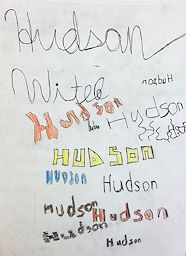 Hudson
Witeé
Hudson
Hudson
Hudson
HUDSON
HUDSON
Hudson
Hudson
Hudson
Hudson